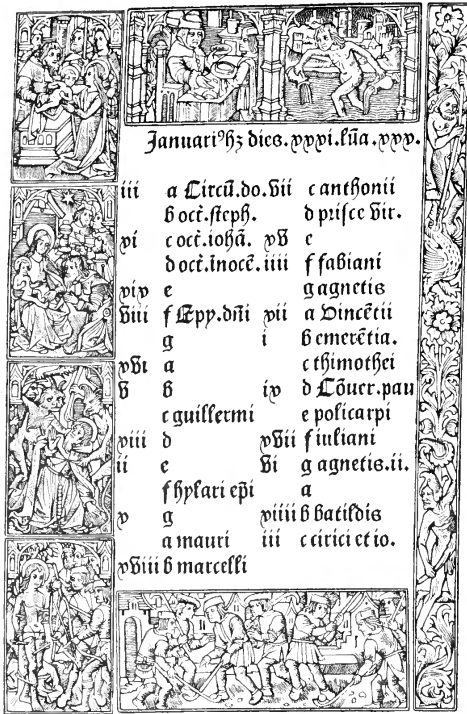 Januariꝰ hz dies.xxxi.lūa.xxx.
iii a Circū.do.
b oct.steph.
xi c oct.iohā.
d oct.inocē.
xix e
viii f Epy.dñi
g
xvi a
v b
c guillermi
xiii d
ii e
f hylari ep̄i
x g
a mauri
xviii b marcelli
vii c anthonii
d prisce vir.
xv e
iiii f fabiani
g agnetis
xii a Vincētii
i b emerētia.
c thimothei
ix d Cōuer.pau
e policarpi
xvii f iuliani
vi g agnetis.ii.
a
xiiii b batildis
iii c cirici et io.